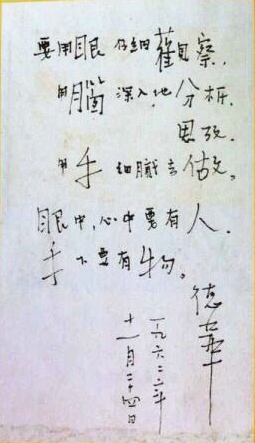 要用眼 仔細觀察，
用腦 深入地 分析.
思攷.
用手 細膩去做。
眼中,心中要有人.
手下要有物。
德華
十一月二十四日